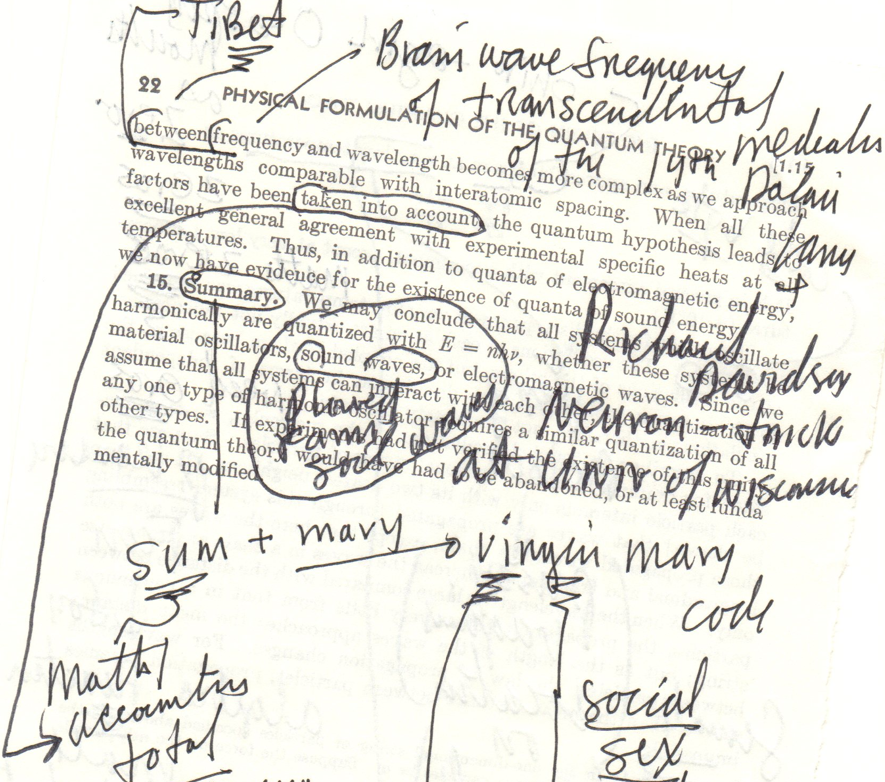 Tibet
Brain wave frequency
of transcendental
of the 14th
Dalai
Lama
22
PHYSICAL FORMULATION OF THE QUANTUM THEORY
[1.15
between frequency and wavelength becomes more complex as we approach
wavelengths comparable with interatomic spacing. When all these
factors have been taken into account, the quantum hypothesis leads to
excellent general agreement with experimental specific heats at all
temperatures. Thus, in addition to quanta of electromagnetic energy,
we now have evidence for the existence of quanta of sound energy.
15. Summary. We may conclude that all systems oscillate
harmonically are quantized with E = nhν, whether these systems
material oscillators, sound waves, or electromagnetic waves. Since we
assume that all systems can interact with each other, quantization
any one type of harmonic oscillator requires a similar quantization of all
other types. If experiments had not verified the existence of this
the quantum theory would have had to be abandoned, or at least funda
mentally modified
Richard
Davidson
Neuron-trick
at Univ of Wisconsin
social waves
sum + mary
virgin mary
code
Math
accounting
total
social
sex